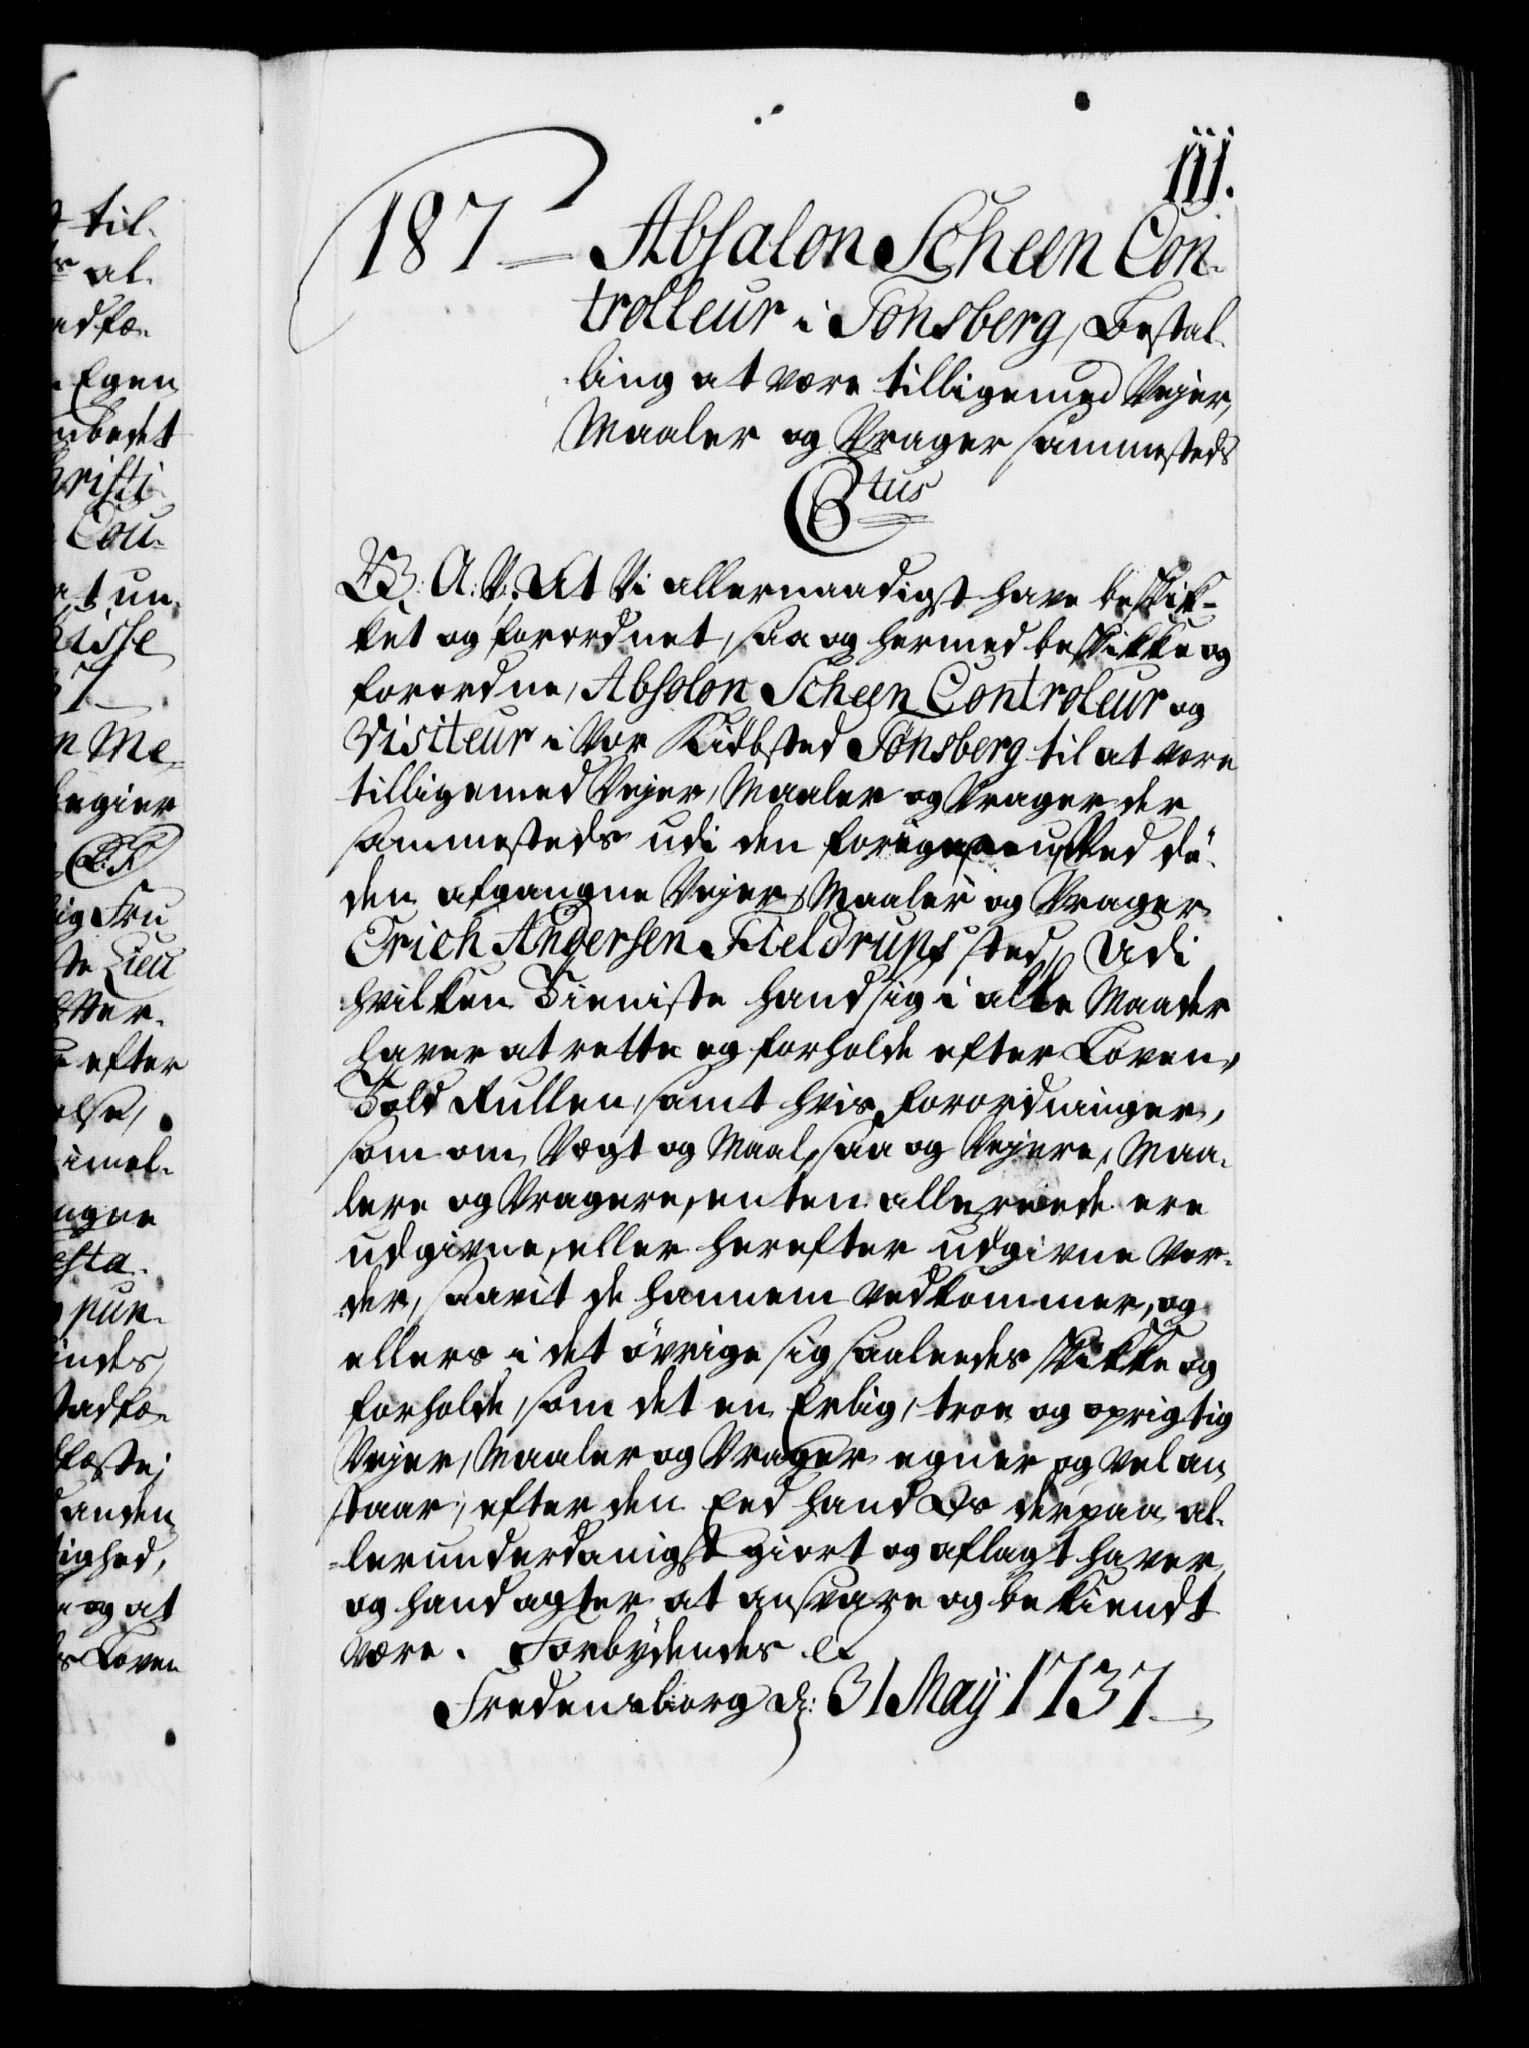 til.
al.
Egen
Cou-
at un-
Me-
efter
anden
ighed,
og at
Loven
111.
187 — Absalon Scheen Con-
trolleur i Tønsberg, Bestal-
ling at være tilligemed Vejer,
Maaler og Vrager sammesteds
C6tus
V: A: V: At Vi allernaadigst have beskik-
ket og forordnet, saa og hermed beskikke og
forordne, Absolon Scheen Controleur og
Visiteur i Vor Kiøbsted Tønsberg til at være
tilligemed Vejer, Maaler og Vrager der
sammesteds udi den forige ved dø-
den afgangne Vejer, Maaler og Vrager
Erich Andersen Fieldrups sted, Udi
hvilken Tieniste hand sig i alle Maader
haver at rette og forholde efter Loven,
Told Rullen, samt hvis Forordninger,
som om Vægt og Maal, saa og Vejere, Maa-
lere og Vragere, enten allereede ere
udgivne, eller herefter udgivne Vor-
der, saavit de hannem vedkommer, og
ellers i det øvrige sig saaleedes skikke og
forholde, som det en Erlig, troe og oprigtig
Vejer, Maaler og Vrager egner og vel an
staar, efter den Eed hand Os derpaa al-
lerunderdanigst giort og aflagt haver,
og hand agter at ansvare og bekiendt
være. Forbydendes &
Fredensborg d: 31 Maij 1737 —